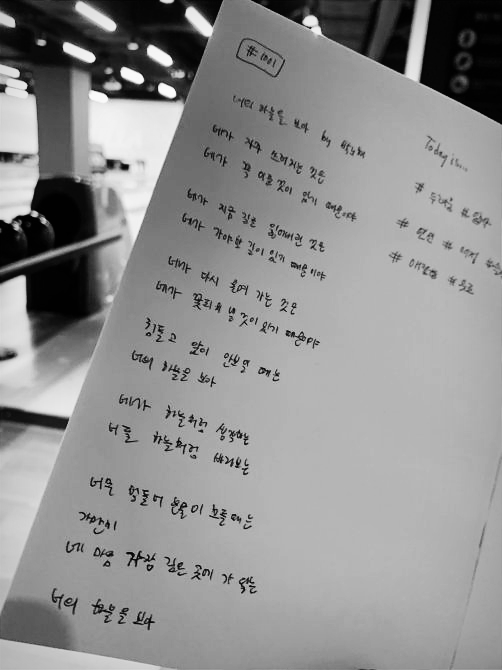 #1001
너의 하늘을 보아 by 박노해
네가 자주 쓰러지는 것은
네가 꼭 이룰 것이 있기 때문이야
네가 지금 길을 잃어버린 것은
네가 가야할 길이 있기 때문이야
네가 다시 울며 가는 것은
네가 꽃피워 낼 것이 있기 때문이야
힘들고 앞이 안보일 때는
너의 하늘을 보아
네가 하늘처럼 생각하는
너를 하늘처럼 바라보는
너무 힘들어 눈물이 흐를 때는
가만히
네 마음 가장 깊은 곳에 가 닿는
너의 하늘을 보아
Today is...
#
# #
# #